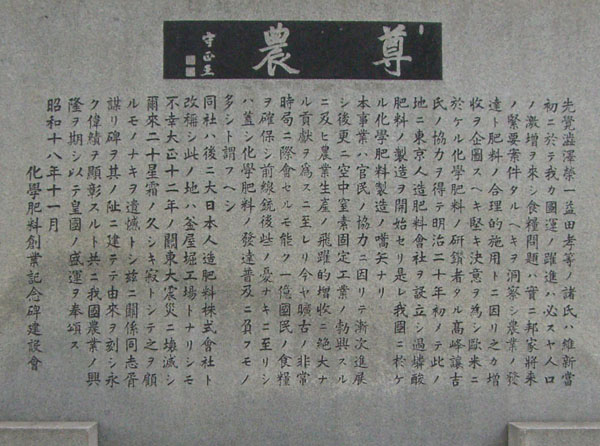 尊農
守正王
先覺澁澤榮一益田孝等ノ諸氏ハ維新當
初ニ於テ我カ國運ノ躍進ハ必スヤ人口
ノ激增ヲ來シ食糧問題ハ實ニ邦家將來
ノ緊要案件タルヘキヲ洞察シ農業ノ發
達ト肥料ノ合理的施用トニ因リ之カ增
收ヲ企圖スヘキ堅キ決意ヲ爲シ歐米ニ
於ケル化學肥料ノ硏鑽者タル高峰讓吉
氏ノ協力ヲ得テ明治二十年初メテ此ノ
地ニ東京人造肥料會社ヲ設立シ過燐酸
肥料ノ製造ヲ開始セリ是レ我國ニ於ケ
ル化學肥料製造ノ嚆矢ナリ
本事業ハ官民ノ協力ニ因リテ漸次進展
シ後更ニ空中窒素固定工業ノ勃興スル
ニ及ヒ農業生產ノ飛躍的增收ニ絕大ナ
ル貢獻ヲ爲スニ至レリ今ヤ曠古ノ非常
時局ニ際會セルモ能ク一億國民ノ食糧
ヲ確保シ前線銃後些ノ憂ナキニ至リシ
ハ蓋シ化學肥料ノ發達普及ニ負フモノ
多シト謂フヘシ
同社ハ後ニ大日本人造肥料株式會社ト
改稱シ此ノ地ハ釜屋堀工場トナリシモ
不幸大正十二年ノ關東大震災ニ壞滅シ
爾來二十星霜ノ久シキ寂トシテ之ヲ顧
ルモノナキヲ遺憾トシ茲ニ關係同志胥
謀リ碑ヲ其ノ阯ニ建テテ由來ヲ刻シ永
ク偉績ヲ顯彰スルト共ニ我國農業ノ興
隆ヲ期シ以テ皇國ノ盛運ヲ奉頌ス
昭和十八年十一月
化學肥料創業記念碑建設會